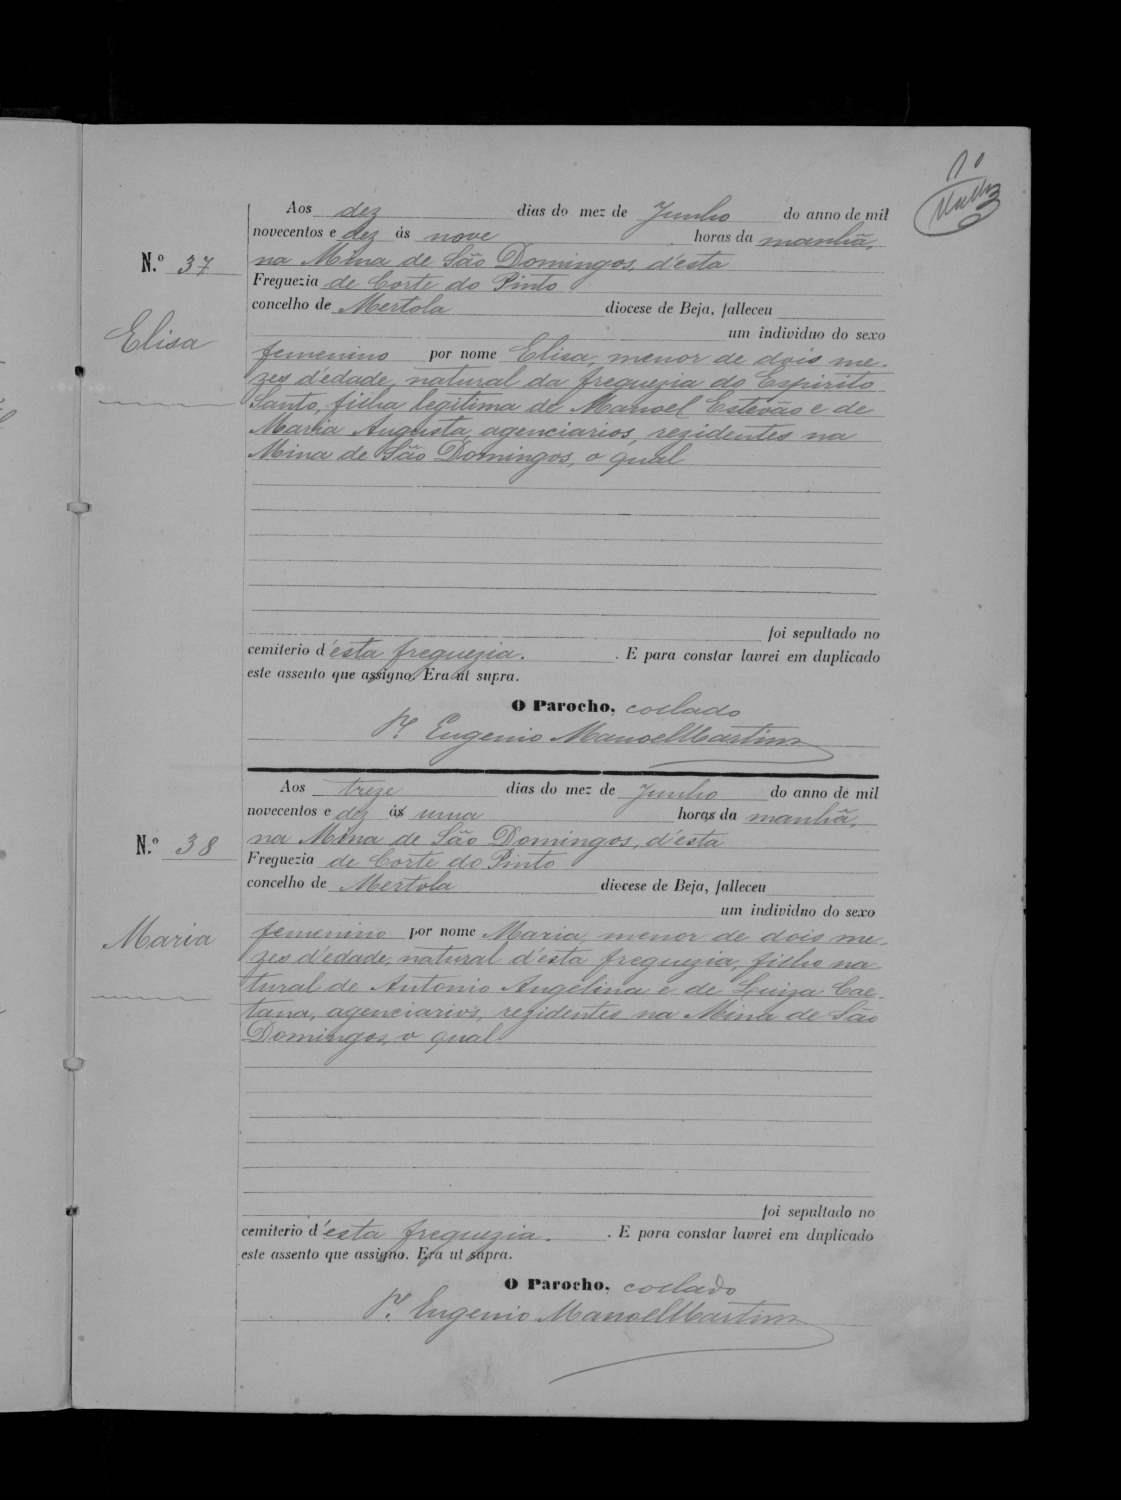 Aos dez dias do mez de Junho do anno de mil
novecentos e dez ás nove horas da manhã,
N.º 37
na Mina de São Domingos, d'esta
Freguezia de Corte do Pinto
concelho de Mertola diocese de Beja, falleceu
um individuo do sexo
Elisa
femenino por nome Elisa, menor de dois me-
zes d'edade, natural da freguezia do Espirito
Santo, filha legitima de Manoel Estevão e de
Maria Augusta, agenciarios, rezidentes na
Mina de São Domingos, o qual
foi sepultado no
cemiterio d'esta freguezia. . E para constar lavrei em duplicado
este assento que assigno. Era ut supra.
O Parocho, collado
P.e Eugenio Manoel Martins
Aos treze dias do mez de Junho do anno de mil
novecentos e dez ás uma horas da manhã,
N.º 38
na Mina de São Domingos, d'esta
Freguezia de Corte do Pinto
concelho de Mertola diocese de Beja, falleceu
um individuo do sexo
Maria
femenino por nome Maria, menor de dois me-
zes d'edade, natural d'esta freguezia, filho na-
tural de Antonio Angelina e de Luiza Cae-
tana, agenciarios, rezidentes na Mina de São
Domingos, o qual
foi sepultado no
cemiterio d'esta freguezia. . E para constar lavrei em duplicado
este assento que assigno. Era ut supra.
O Parocho, collado
P.e Eugenio Manoel Martins